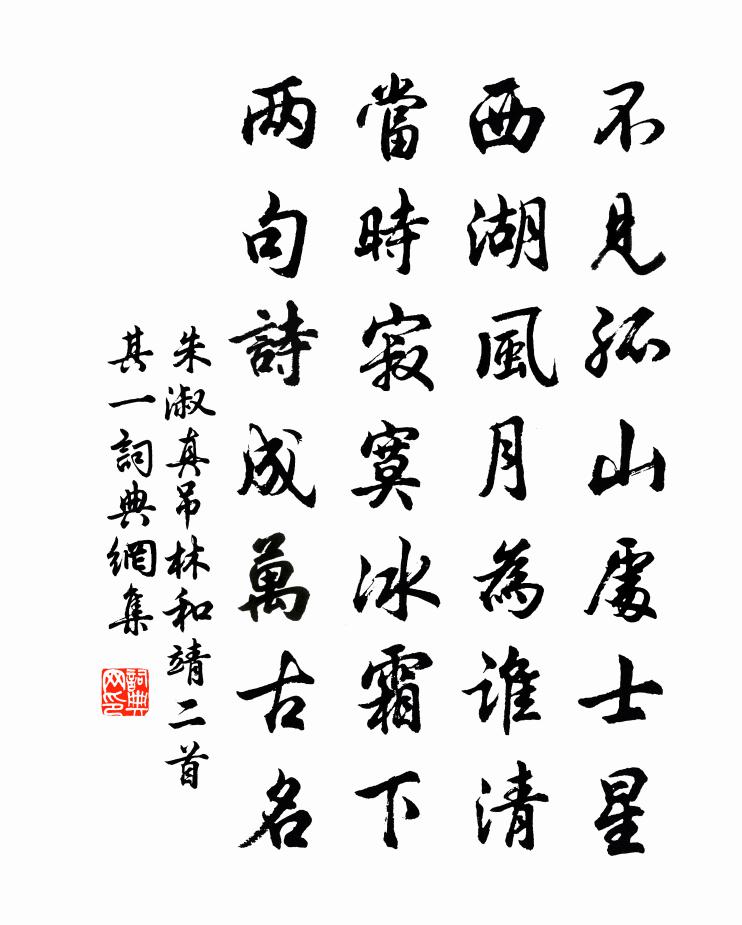 不見孤山處士星
西湖風月為誰清
當時寂寞冰霜下
两句詩成萬古名
朱淑真吊林和靖二首
其一詞典網集
詞典
网印